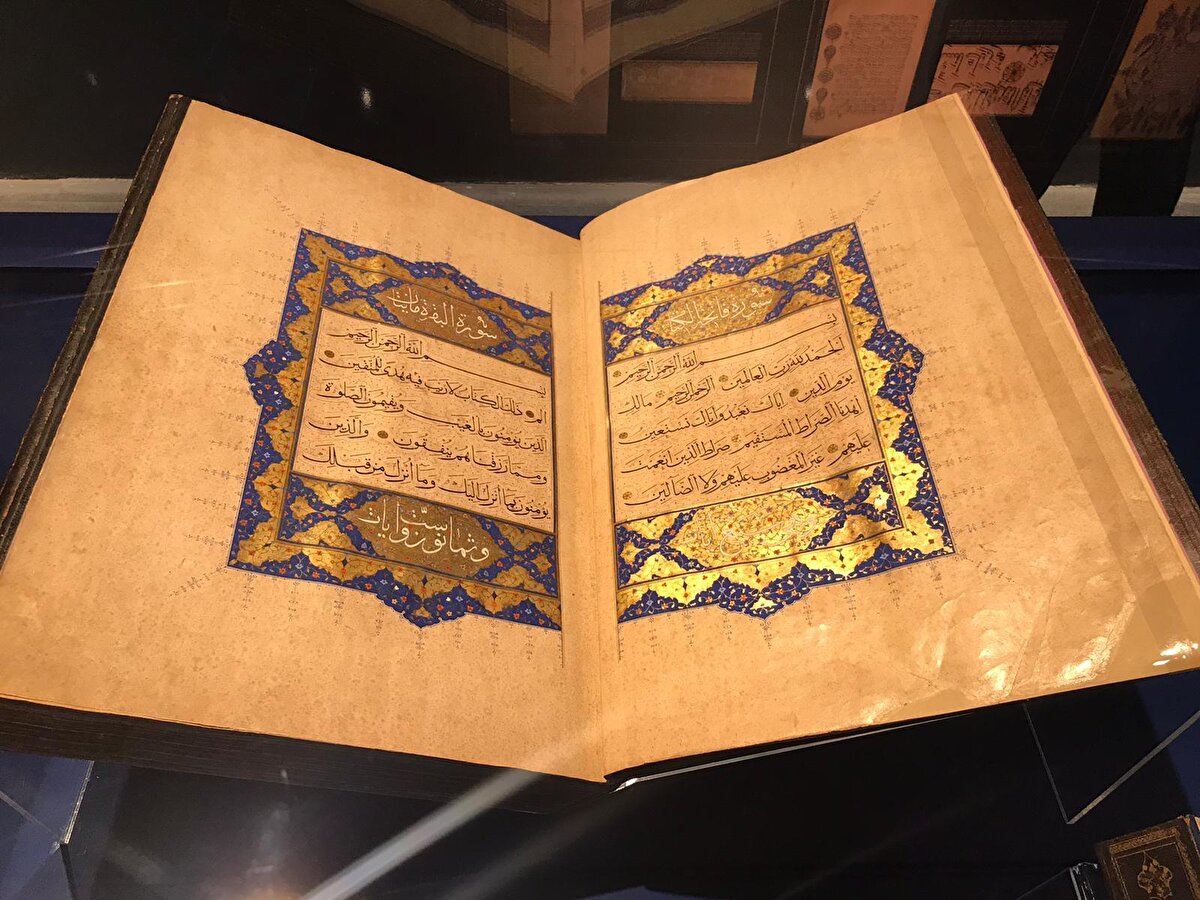 سورة فاتحة الكتاب
بسم الله الرحمن الرحيم
الحمد لله رب العالمين الرحمن الرحيم مالك
يوم الدين اياك نعبد واياك نستعين
اهدنا الصراط المستقيم صراط الذين انعمت
عليهم غير المغضوب عليهم ولا الضالين
سورة البقرة مايتان
بسم الله الرحمن الرحيم
الم ذلك الكتاب لا ريب فيه هدى للمتقين
الذين يؤمنون بالغيب ويقيمون الصلوة
ومما رزقناهم ينفقون والذين
يؤمنون بما انزل اليك وما انزل من قبلك
وست وثمانون ايات